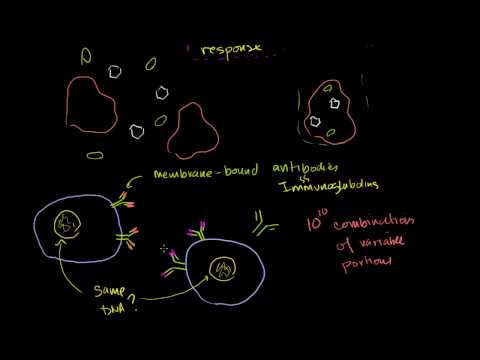 response
membrane-bound antibodies
Immunoglobulins
10^10 combinations
of variable
portions
same
DNA?